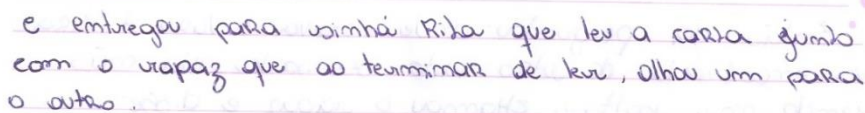 e entregou para sinhá Rita que leu a carta junto
com o rapaz que ao terminar de ler, olhou um para
o outro.